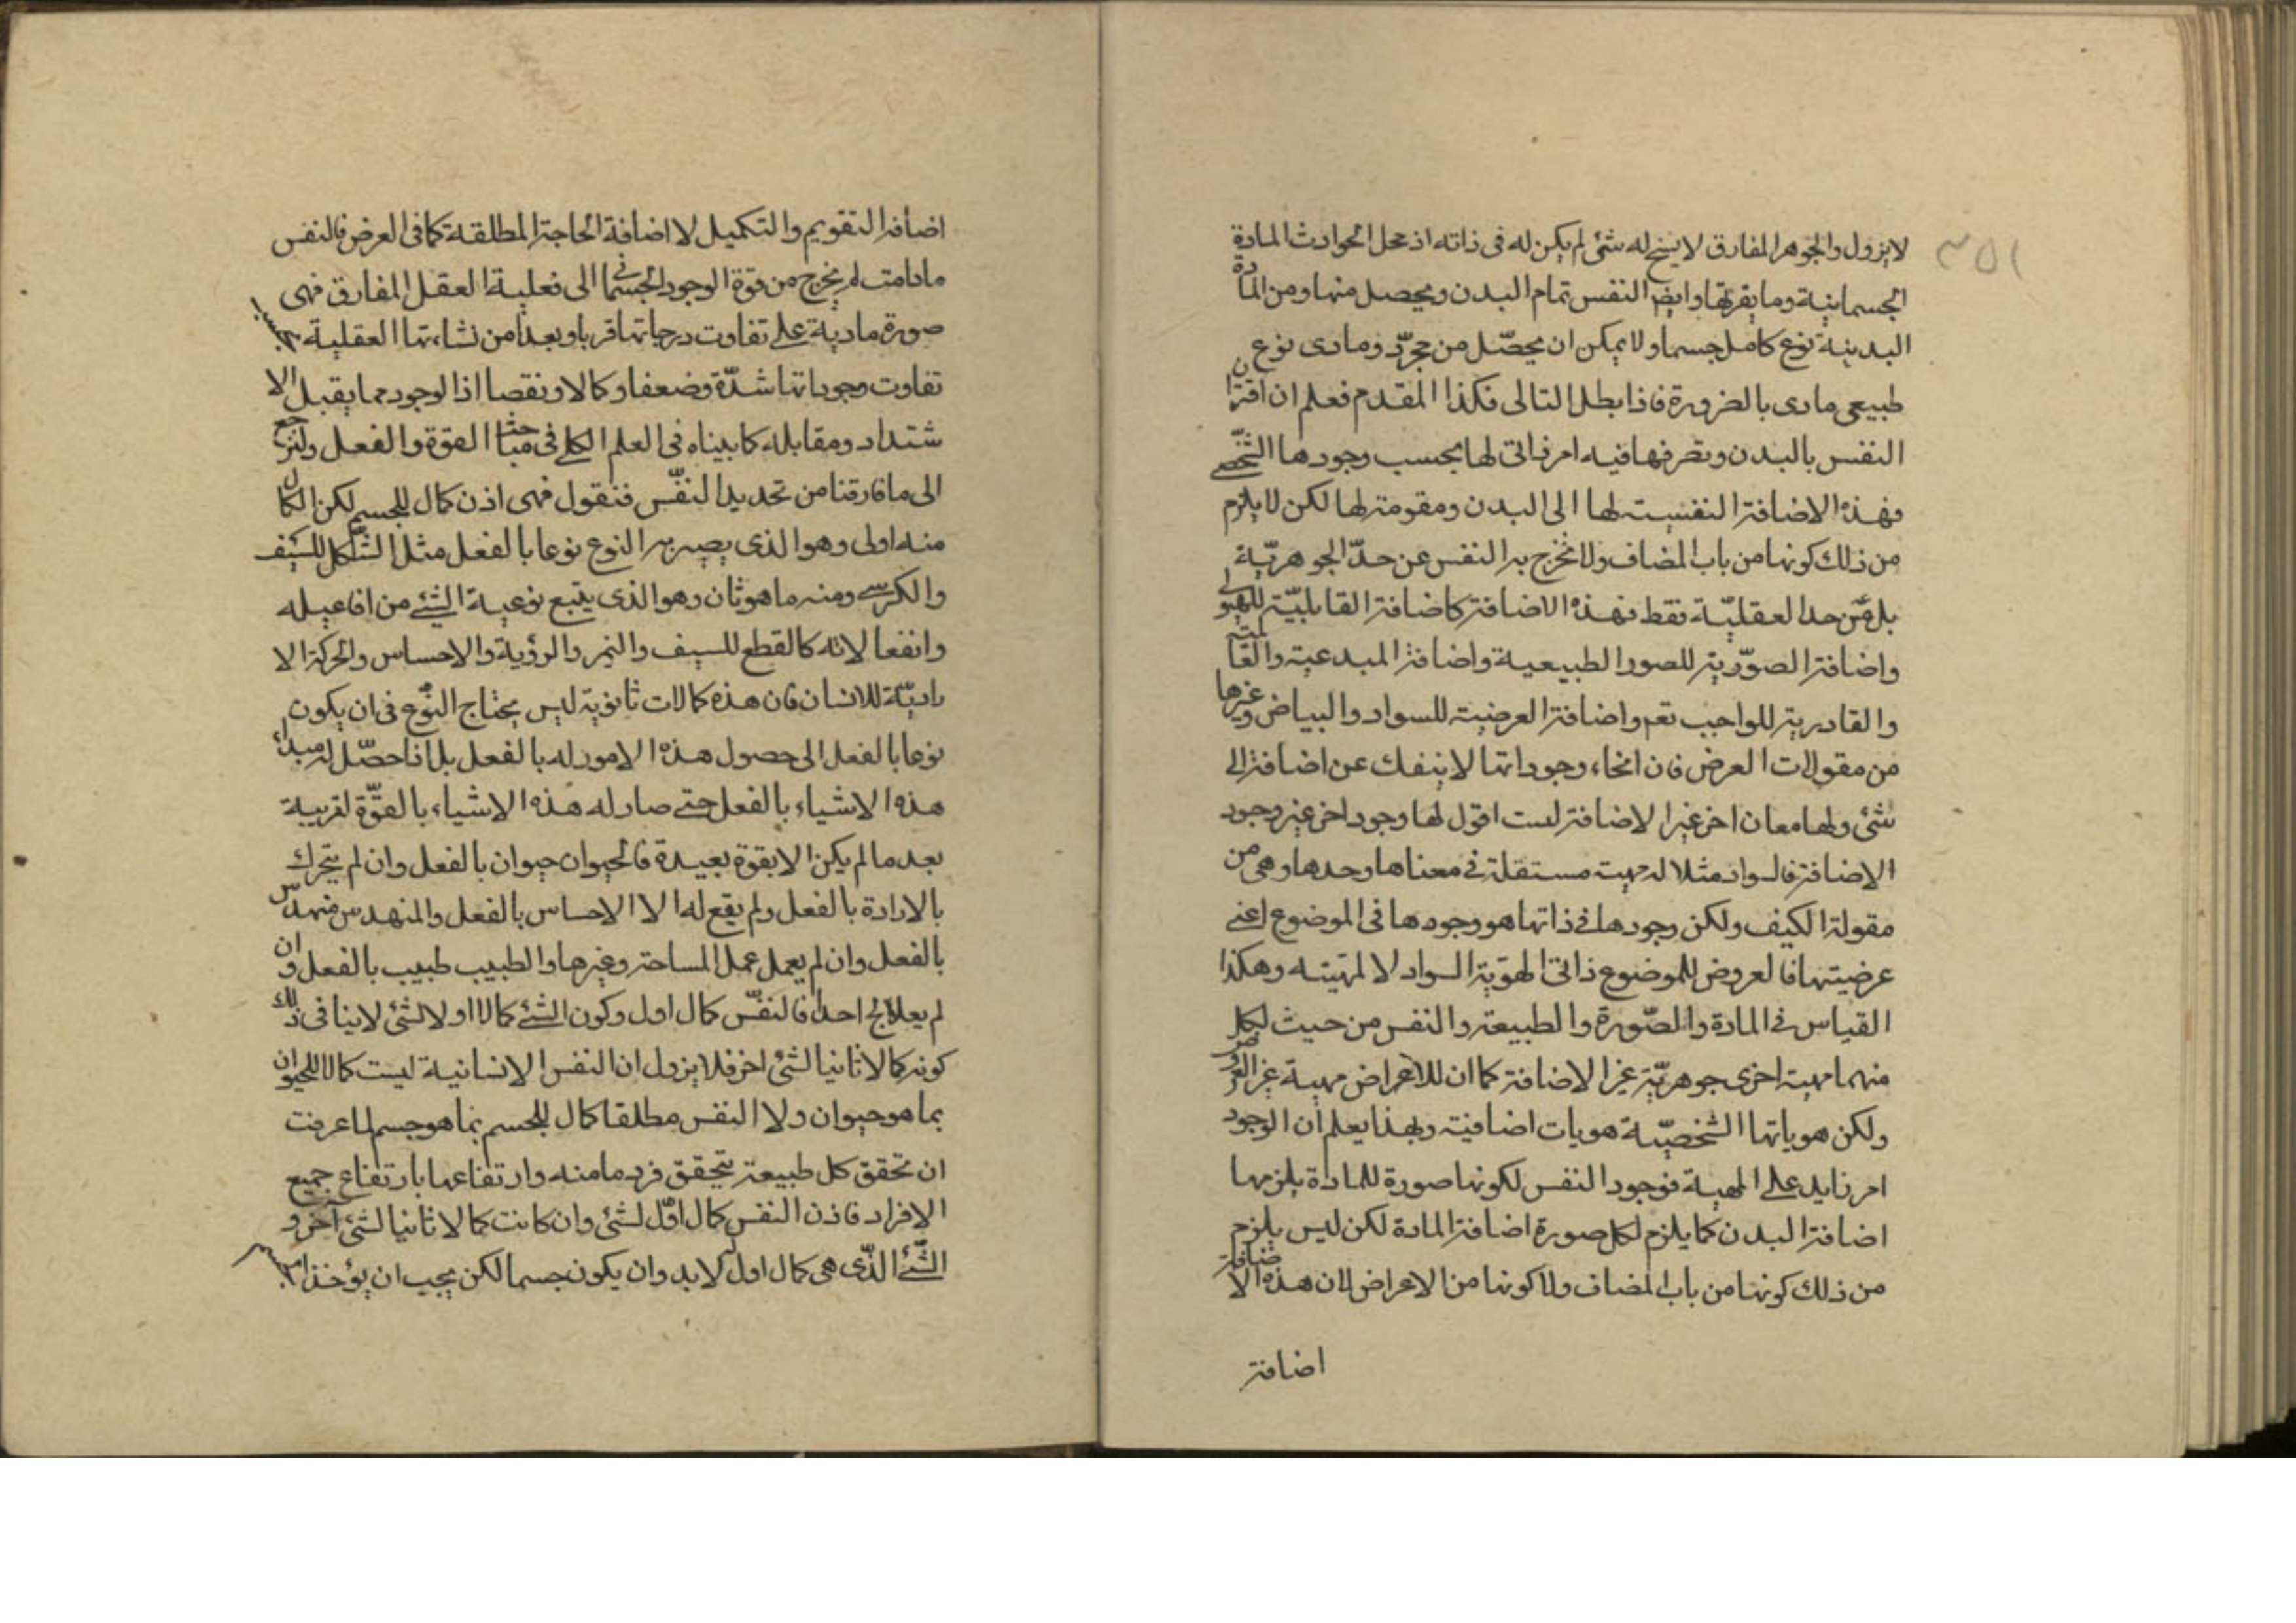 ٣٥١
لا يزول والجوهر المفارق لا يسنح له شئ لم يكن له فى ذاته اذ محل الحوادث المادة
الجسمانية وما يقربها وايضا النفس تمام البدن ويحصل منها ومن المادة
البدينة نوع كامل جسما ولا يمكن ان يحصّل من مجرّد ومادى نوع
طبيعى مادى بالضرورة فاذا بطل التالى فكذا المقدم فعلم ان اقتران
النفس بالبدن وتصرفها فيه امر ذاتى لها بحسب وجودها الشّخصى
فهذه الاضافة النفسيت لها الى البدن ومقومة لها لكن لا يلزم
من ذلك كونها من باب المضاف ولا تخرج به النفس عن حدّ الجوهريّة
بل عن حد العقليّة فقط فهذه الاضافة كاضافة القابليّة للهيولى
واضافة الصوّرية للصور الطبيعية واضافة المبدعية والعالمية
والقادرية للواجب تعم واضافة العرضية للسواد والبياض وغيرها
من مقولات العرض فان انحاء وجوداتها لا ينفك عن اضافة الى
شئ ولها معان اخر غير الاضافة لست اقول لها وجود اخر غير وجود
الاضافة فالسواد مثلا له مهية مستقلة فى معناها وحدها وهى من
مقولة الكيف ولكن وجودها فى ذاتها هو وجودها فى الموضوع اعنى
عرضيتها فالعروض للموضوع ذاتى لهويّة السواد لا لمهيته وهكذا
القياس فى المادة والصّورة والطبيعة والنفس من حيث لكل
منهما مهية اخرى جوهريّة غير الاضافة كما ان للاعراض مهية غير العروض
ولكن هوياتها الشخصيّة هويات اضافية وبهذا يعلم ان الوجود
امر زايد على المهية فوجود النفس لكونها صورة للمادة يلزمها
اضافة البدن كما يلزم لكل صورة اضافة المادة لكن ليس يلزم
من ذلك كونها من باب المضاف ولا كونها من الاعراض لان هذه الاضافة
اضافة
اضافة التقويم والتكميل لا اضافة الحاجة المطلقة كما فى العرض فالنفس
ما دامت لم يخرج من قوة الوجود الجسمانى الى فعلية العقل المفارق فهى
صورة مادية على تفاوت درجاتها قربا وبعدا من نشاءتها العقلية بحسب
تفاوت وجوداتها شدّة وضعفا وكمالا ونقصا اذ الوجود مما يقبل الا
شتداد ومقابله كما بيناه فى العلم الكلى فى مباحث القوة والفعل ولنرجع
الى ما فارقنا من تحديد النفّس فنقول فهى اذن كمال للجسم لكن الكمال
منه اولى وهو الذى يصير به النوع نوعا بالفعل مثل الشّكل للسّيف
والكرسى ومنه ما هو ثان وهو الذى يتبع نوعية الشئ من افاعيله
وانفعالاته كالقطع للسيف والتميز والرؤية والاحساس والحركة الا
راديّة للانسان فان هذه كمالات ثانوية ليس يحتاج النّوع فى ان يكون
نوعا بالفعل الى حصول هذه الامور له بالفعل بل اذا حصّل له مبدأ
هذه الاشياء بالفعل حتى صار له هذه الاشياء بالقوّة لقريبة
بعد ما لم يكن الا بقوة بعيدة فالحيوان حيوان بالفعل وان لم يتحرك
بالارادة بالفعل ولم يقع له الا الاحساس بالفعل والمنهدس منهدس
بالفعل وان لم يعمل عمل المساحة وغيرها والطبيب طبيب بالفعل وان
لم يعلالج احدا فالنفّس كمال اول وكون الشئ كمالا اولا لشئ لا ينافى ذلك
كونه كمالا ثانيا لشئ اخر فلا يزول ان النفس الانسانية ليست كمالا للحيوان
بما هو حيوان ولا النفس مطلقا كمال للجسم بما هو جسم لما عرفت
ان تحقق كل طبيعة يتحقق فرد ما منه وارتفاعها بارتفاع جميع
الافراد فاذن النفس كمال اوّل لشئ وان كانت كمالا ثانيا لشئ آخر و
الشّئ الذّى هى كمال اول لا بد وان يكون جسما لكن يجب ان يؤخذ